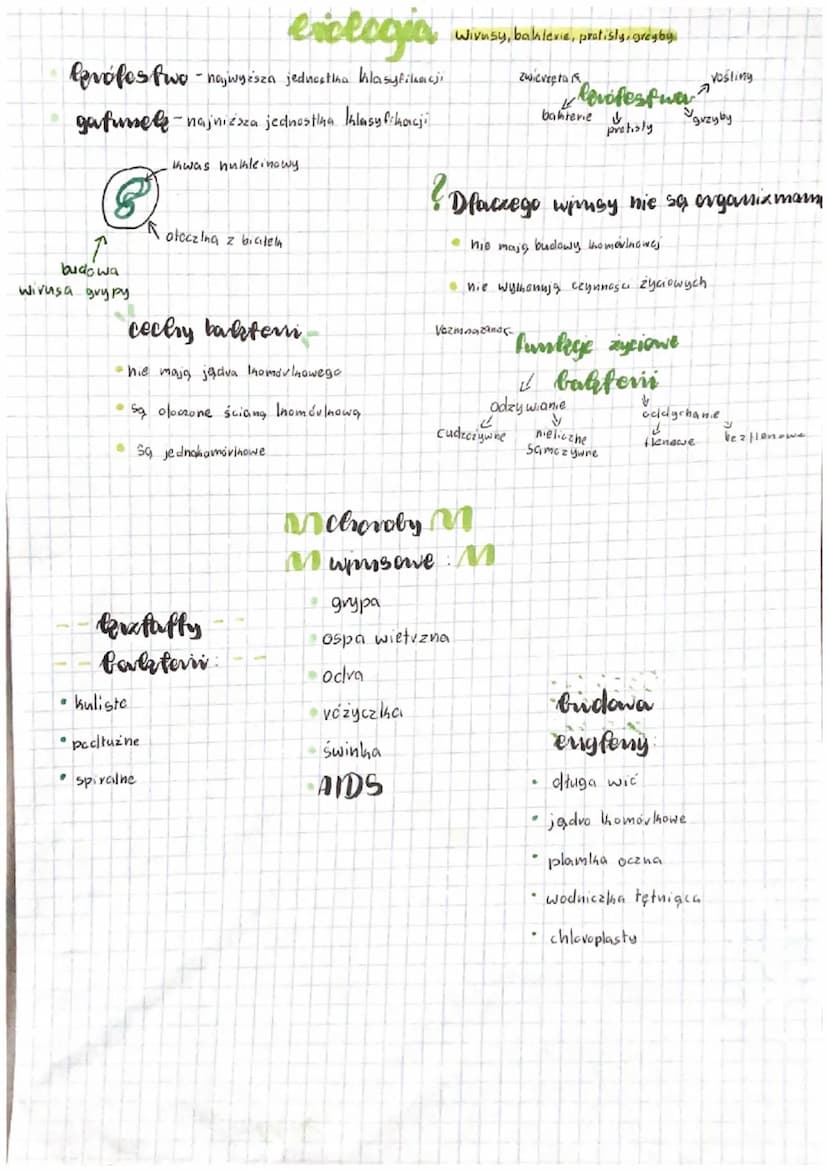 biologia wirusy, bakterie, protisty, grzyby
królestwo - najwyższa jednostka klasyfikacji
gatunek - najniższa jednostka klasyfikacji
zwierzęta
rośliny
królestwa
bakterie
protisty
grzyby
kwas nukleinowy
otoczka z białek
budowa
wirusa grypy
? Dlaczego wirusy nie są organizmami
nie mają budowy komórkowej
nie wykonują czynności życiowych
cechy bakterii
nie mają jądra komórkowego
są otoczone ścianą komórkową
są jednokomórkowe
rozmnażanie
funkcje życiowe
bakterii
odżywianie
oddychanie
cudzożywne
nieliczne
samożywne
tlenowe
beztlenowe
choroby
wirusowe:
grypa
ospa wietrzna
odra
różyczka
świnka
AIDS
kształty
bakterii:
kuliste
podłużne
spiralne
budowa
eugleny:
długa wić
jądro komórkowe
plamka oczna
wodniczka tętniąca
chloroplasty